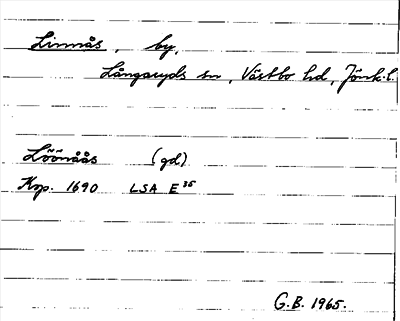 Linnås, by,
Långaryds sn, Västbo hd, Jönk.l.
Löönåås (gd)
Kop. 1690 LSA E 35
G.B. 1965.